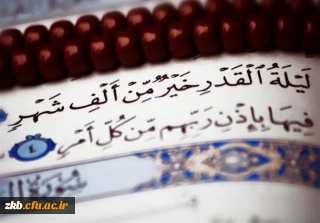 لَيْلَةُ ٱلْقَدْرِ خَيْرٌ مِّنْ أَلْفِ شَهْرٍ
فِيهَا بِإِذْنِ رَبِّهِم مِّن كُلِّ أَمْرٍ ٤
سُورَةُ
zkb.cfu.ac.ir